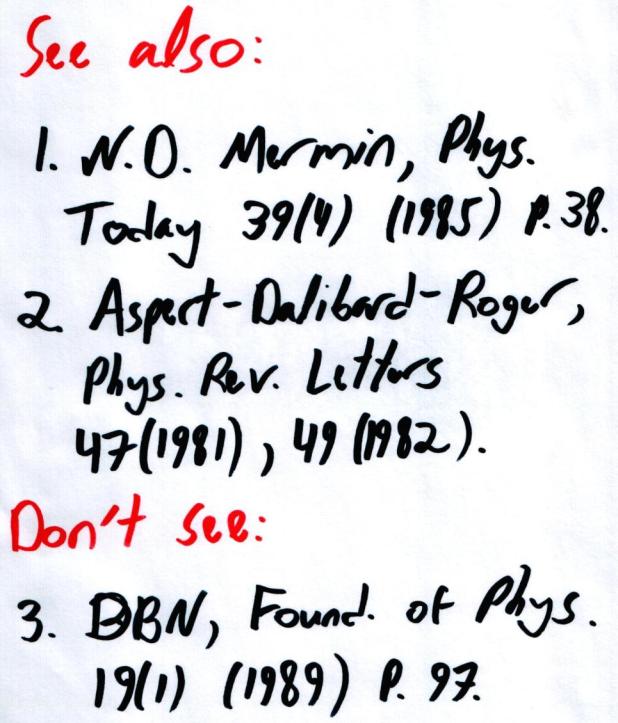 See also:
1. N.D. Mermin, Phys.
Today 39(4) (1985) p. 38.
2. Aspect-Dalibard-Roger,
Phys. Rev. Letters
47(1981), 49 (1982).
Don't see:
3. DBN, Found. of Phys.
19(1) (1989) P. 97.